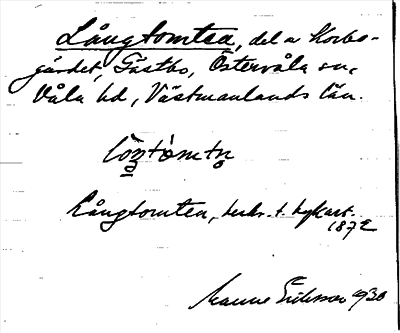 Långtomten, del av Korbo-
gärdet, Gästbo, Östervåla sn,
Våla hd, Västmanlands län.
Långtomten, beskr. t. hgkart.
1872
Manne Eriksson 1930